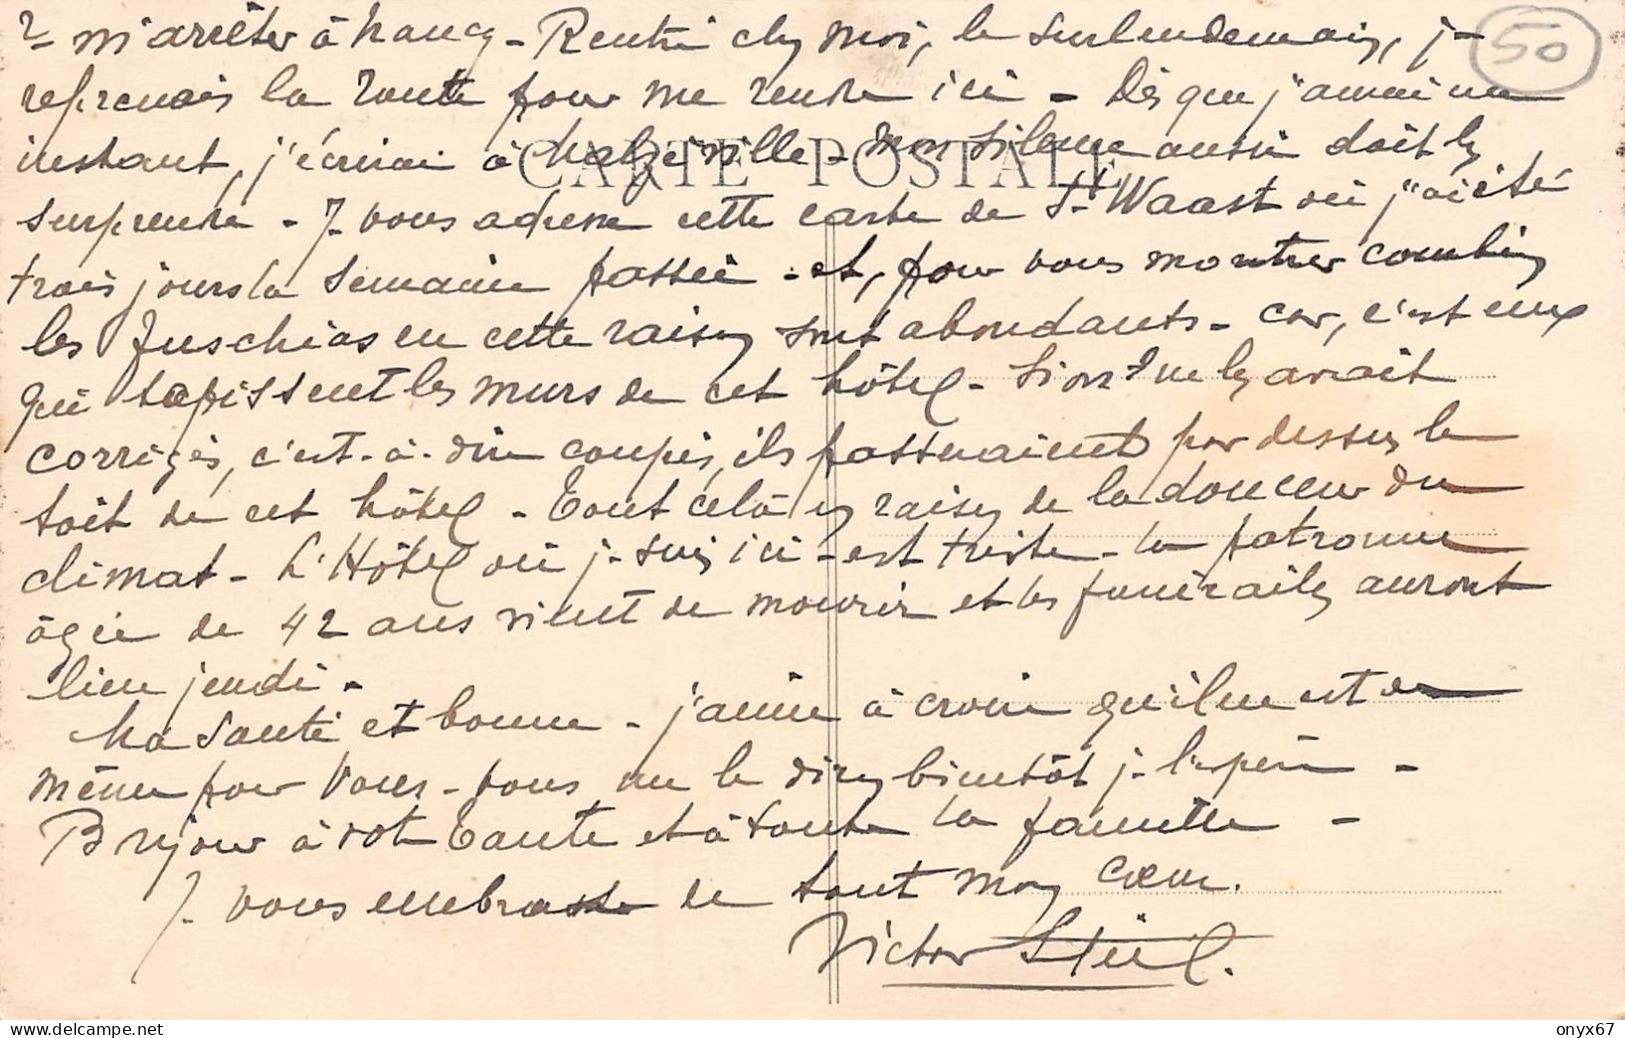 2- m'arrêter à Nancy - Rentré chez moi, le surlendemain, je
reprenais la route pour me rendre ici - Dès que j'aurai un
instant, j'écrirai à Malzéville - Mon silence aussi doit les
CARTE POSTALE
surprendre - Je vous adresse cette carte de St Waast où j'ai été
trois jours la semaine passée - et, pour vous montrer combien
les fuschias en cette raison sont abondants - car, c'est eux
qui tapissent les murs de cet hôtel - Si on ne les avait
corrigés, c'est-à-dire coupés, ils passeraient par dessus le
toit de cet hôtel - Tout celà en raison de la douceur du
climat - L'Hôtel où je suis ici - est triste - la patronne
âgée de 42 ans vient de mourir et les funérailles auront
lieu jeudi -
Ma santé est bonne - j'aime à croire qu'il en est de
même pour vous - vous me le direz bientôt je l'espère -
Bonjour à votre Tante et à toute la famille -
Je vous embrasse de tout mon cœur.
Victor
50
delcampe.net
onyx67